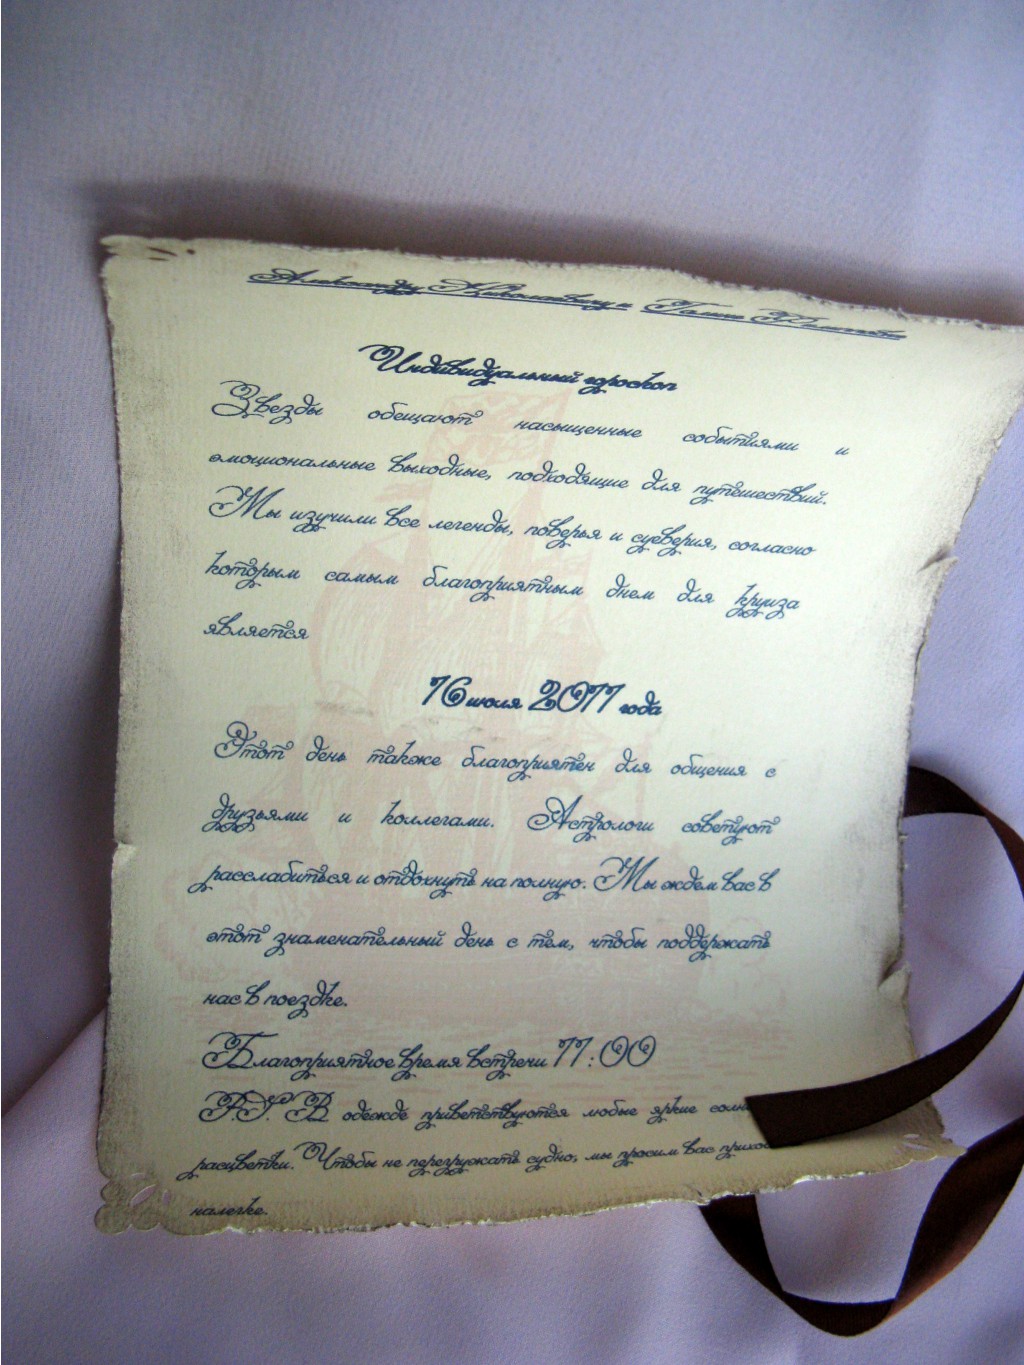 Александру Николаевичу и Галине
Индивидуальный гороскоп
Звезды обещают насыщенные событиями и
эмоциональные выходные, подходящие для путешествий.
Мы изучили все легенды, поверья и суеверия, согласно
которым самым благоприятным днем для круиза
является
16 июля 2011 года
Этот день также благоприятен для общения с
друзьями и коллегами. Астрологи советуют
расслабиться и отдохнуть на полную. Мы ждем вас в
этот знаменательный день с тем, чтобы поддержать
нас в поездке.
Благоприятное время встречи 11:00
P.S. В одежде приветствуются любые яркие солн
расцветки. Чтобы не перегружать судно, мы просим вас прихо
налегке.